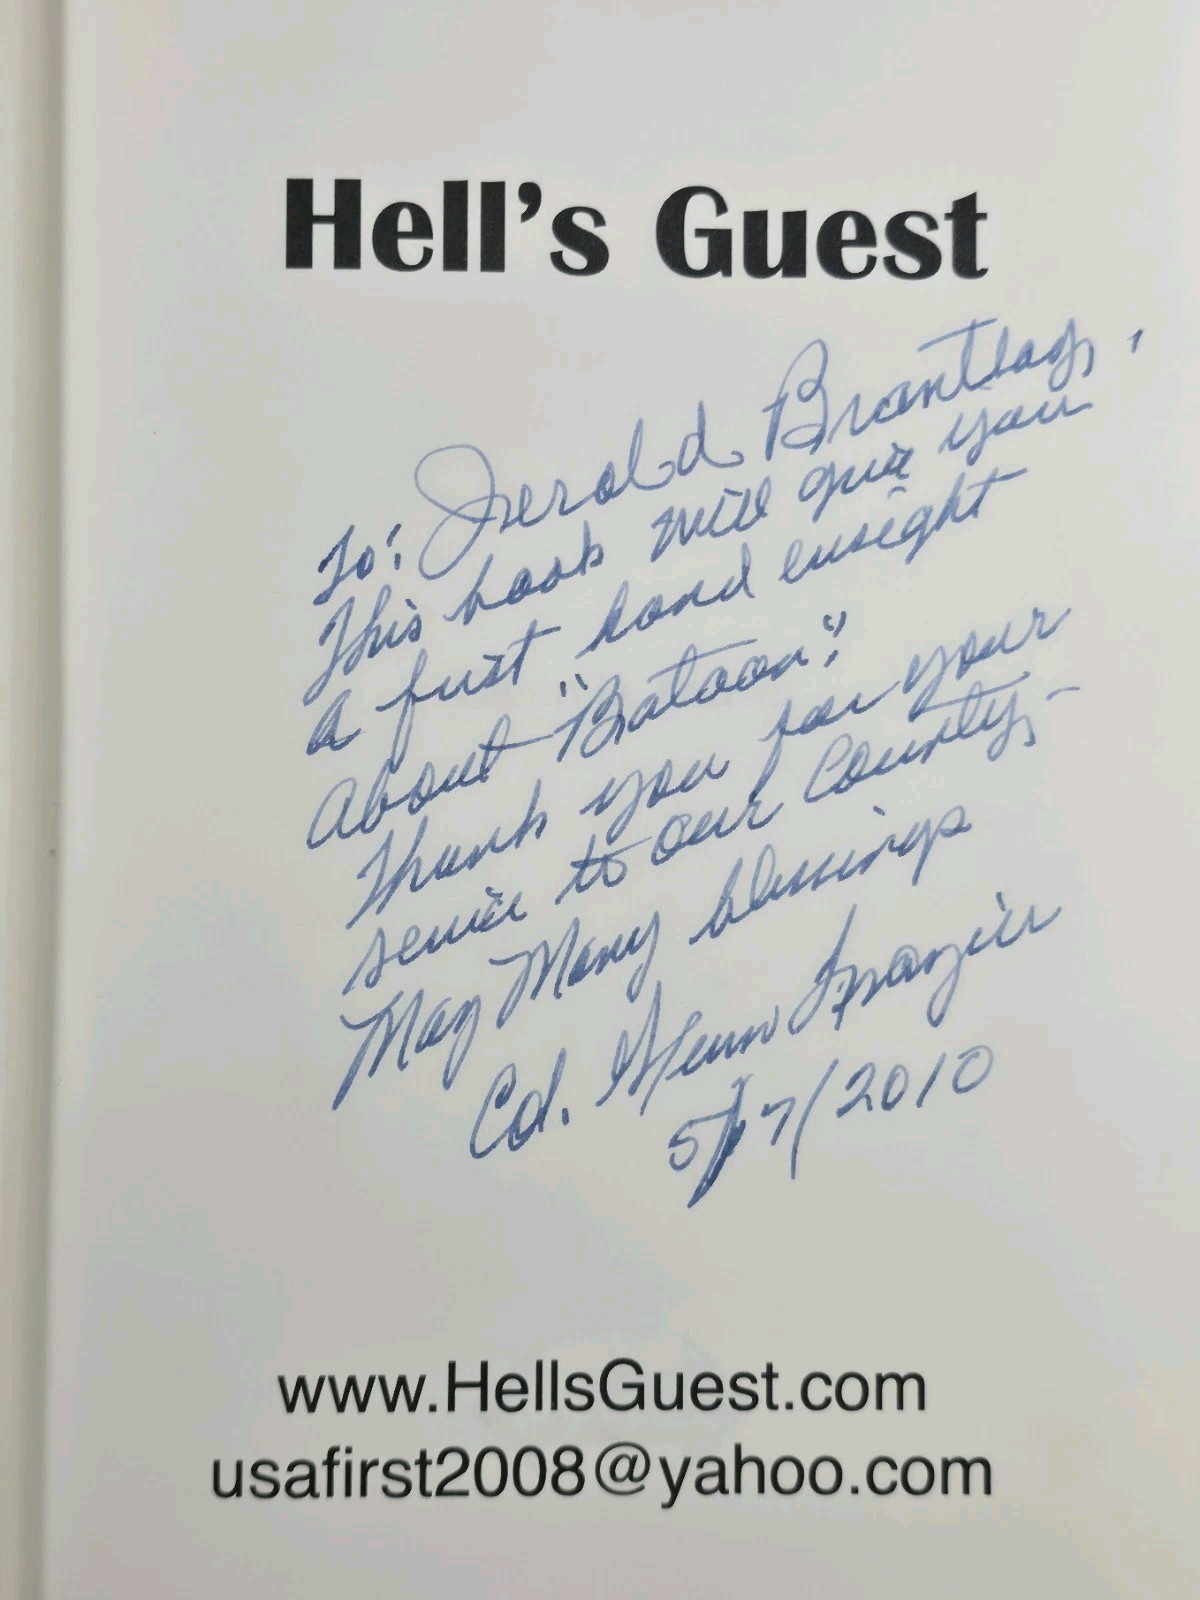 Hell's Guest
To: Jerold Brantley,
This book will give you
a first hand ensight
about "Bataan".
Thank you for your
service to our County,
May Many blessings
Col. Glenn Frazier
5/17/2010
www.HellsGuest.com
usafirst2008@yahoo.com